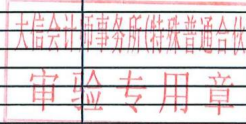 大信会计师事务所(特殊普通合伙
审验专用章